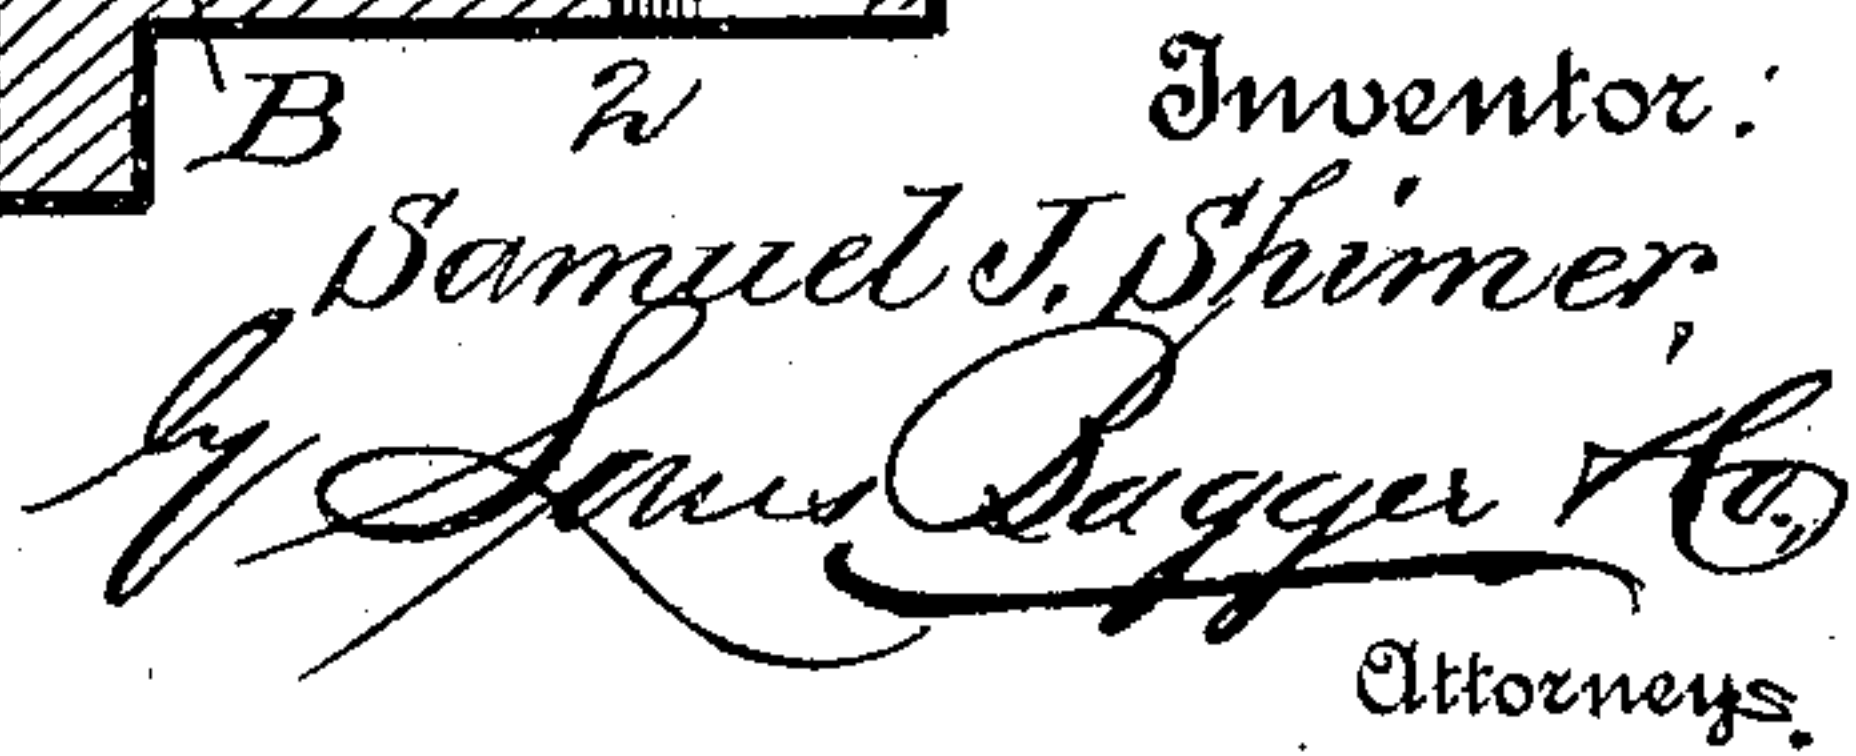 B 2
Inventor:
Samuel J. Shimer,
by Louis Bagger & Co.,
Attorneys.